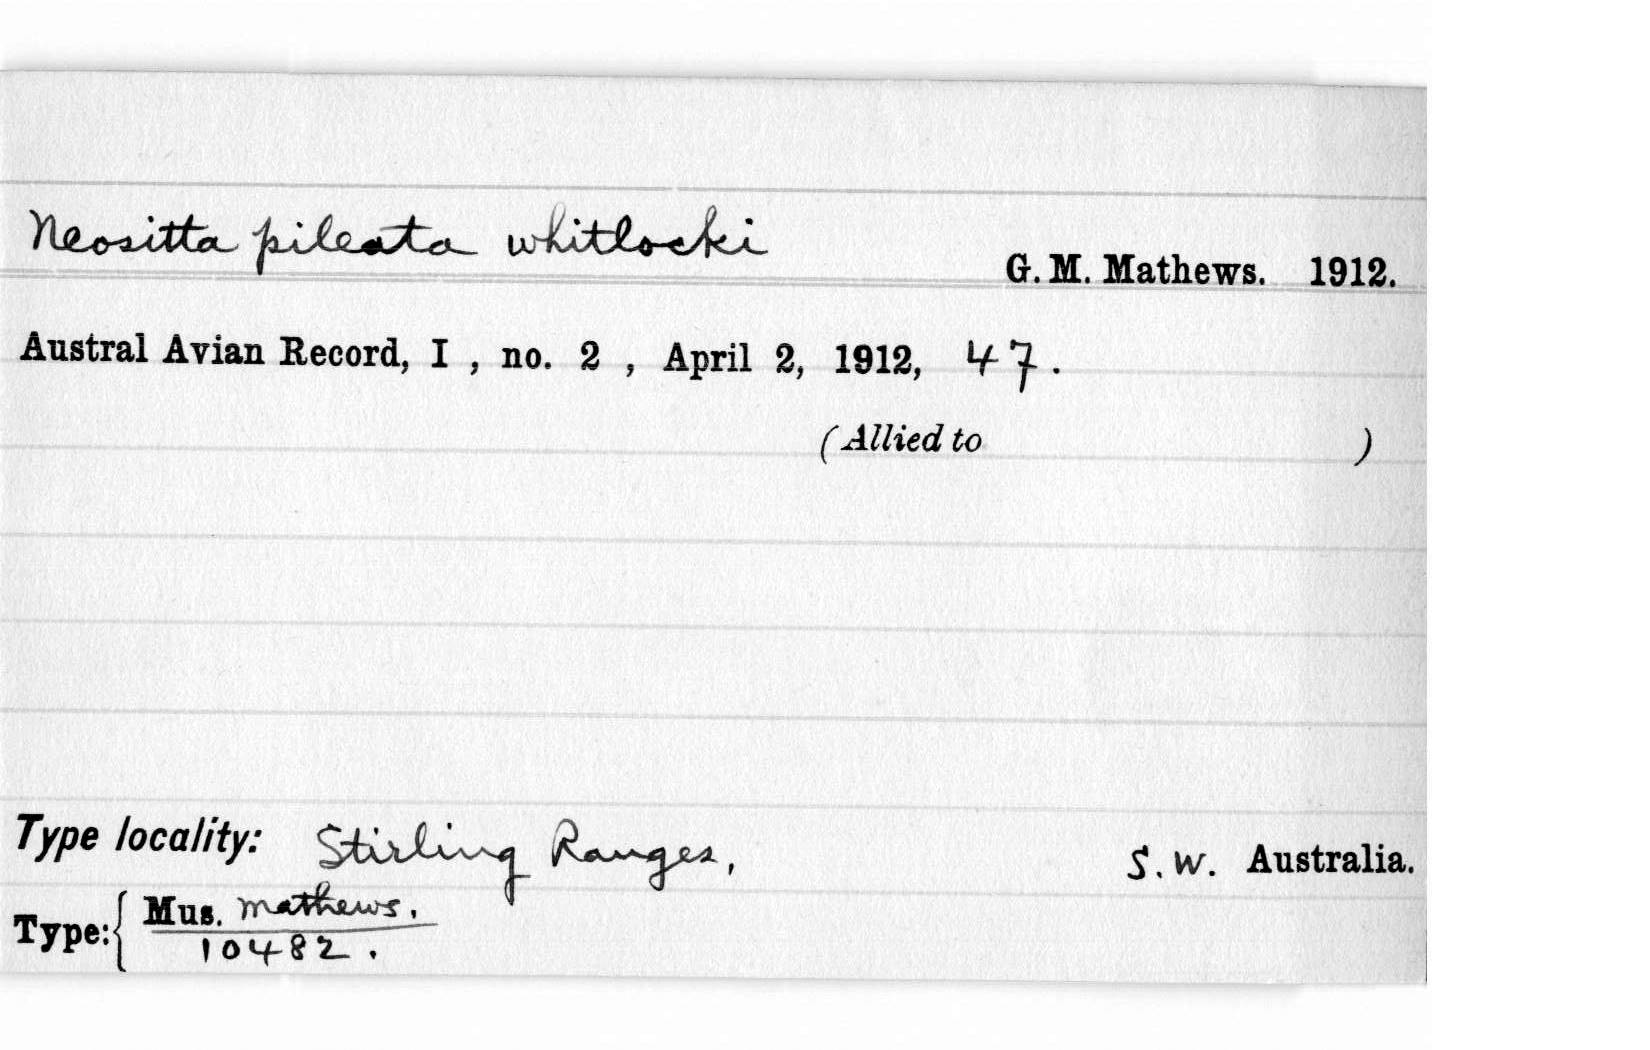 Neositta pileata whitlocki
G. M. Mathews. 1912.
Austral Avian Record, I , no. 2 , April 2, 1912, 47.
(Allied to )
Type locality: Stirling Ranges, S.W. Australia.
Type: { Mus. Mathews.
10482.